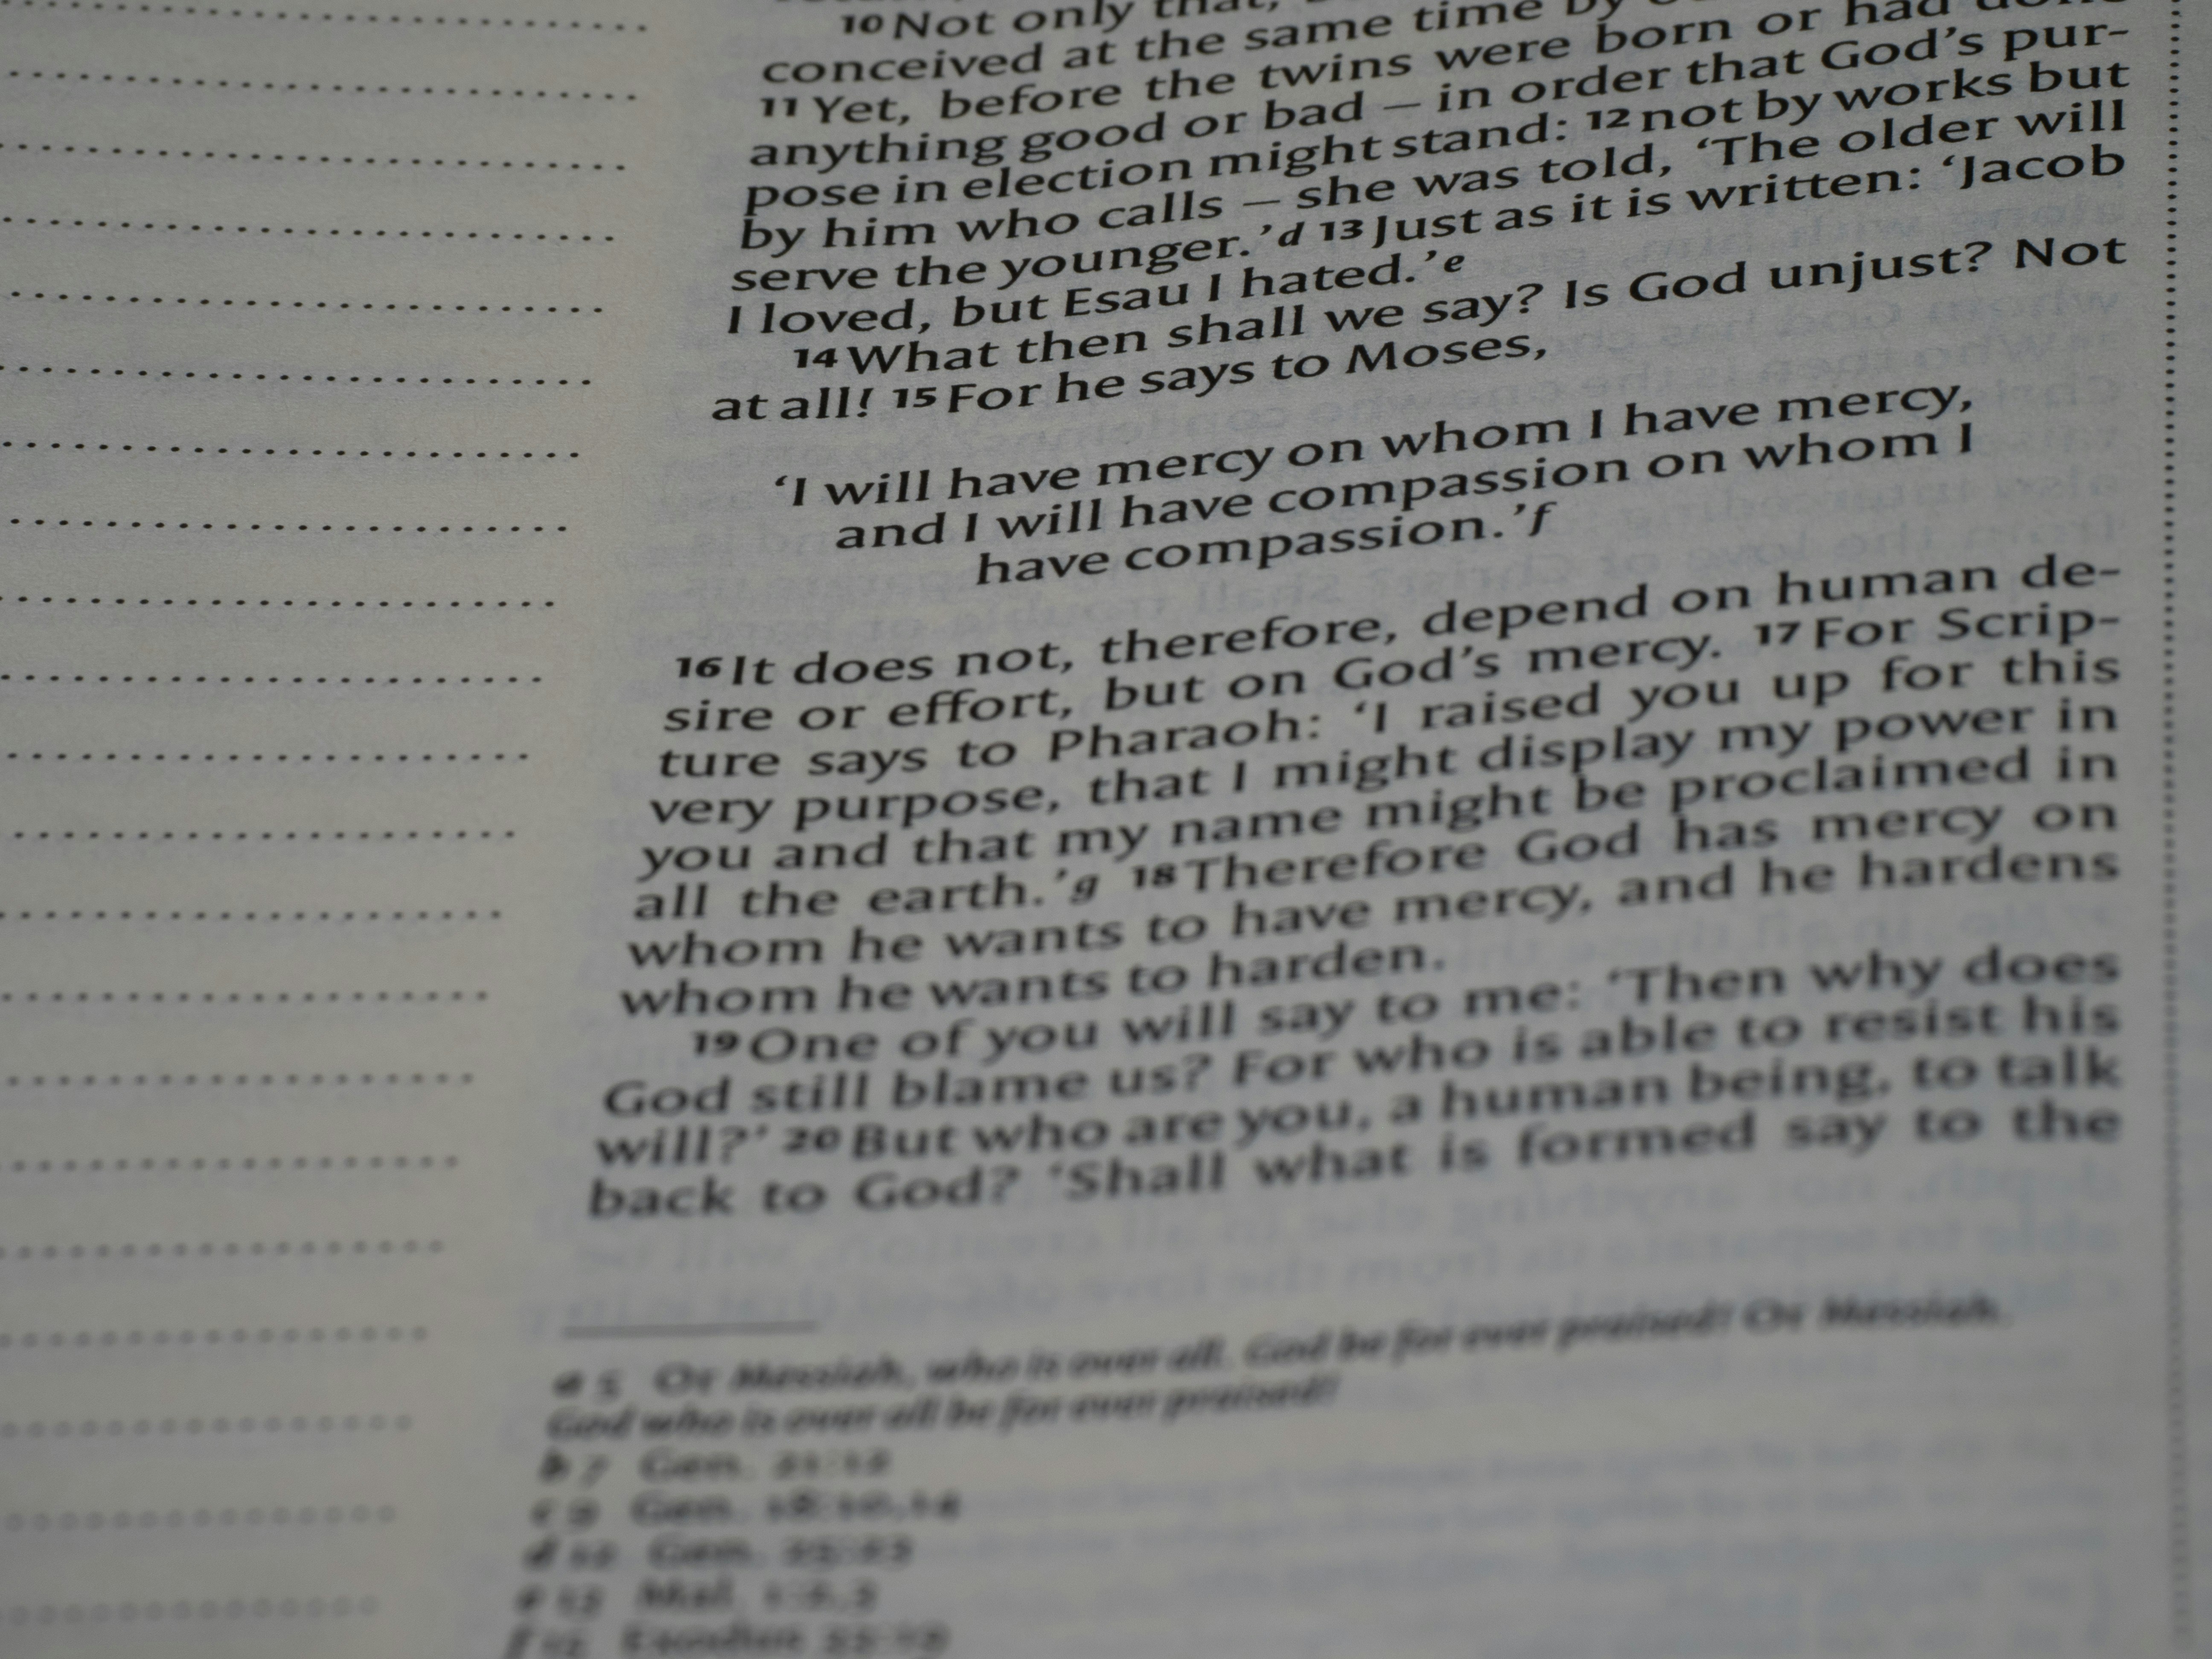 10 Not only that,
conceived at the same time by
11 Yet, before the twins were born or had done
anything good or bad – in order that God's pur-
pose in election might stand: 12 not by works but
by him who calls – she was told, ‘The older will
serve the younger.’d 13 Just as it is written: ‘Jacob
I loved, but Esau I hated.’e
14 What then shall we say? Is God unjust? Not
at all! 15 For he says to Moses,
‘I will have mercy on whom I have mercy,
and I will have compassion on whom I
have compassion.’f
16 It does not, therefore, depend on human de-
sire or effort, but on God’s mercy. 17 For Scrip-
ture says to Pharaoh: ‘I raised you up for this
very purpose, that I might display my power in
you and that my name might be proclaimed in
all the earth.’g 18 Therefore God has mercy on
whom he wants to have mercy, and he hardens
whom he wants to harden.
19 One of you will say to me: ‘Then why does
God still blame us? For who is able to resist his
will?’ 20 But who are you, a human being, to talk
back to God? ‘Shall what is formed say to the
a 5 Or Messiah, who is over all. God be for ever praised! Or Messiah.
God who is over all be for ever praised!
b 7 Gen. 21:12
c 9 Gen. 18:10,14
d 12 Gen. 25:23
e 13 Mal. 1:2,3
f 15 Exodus 33:19